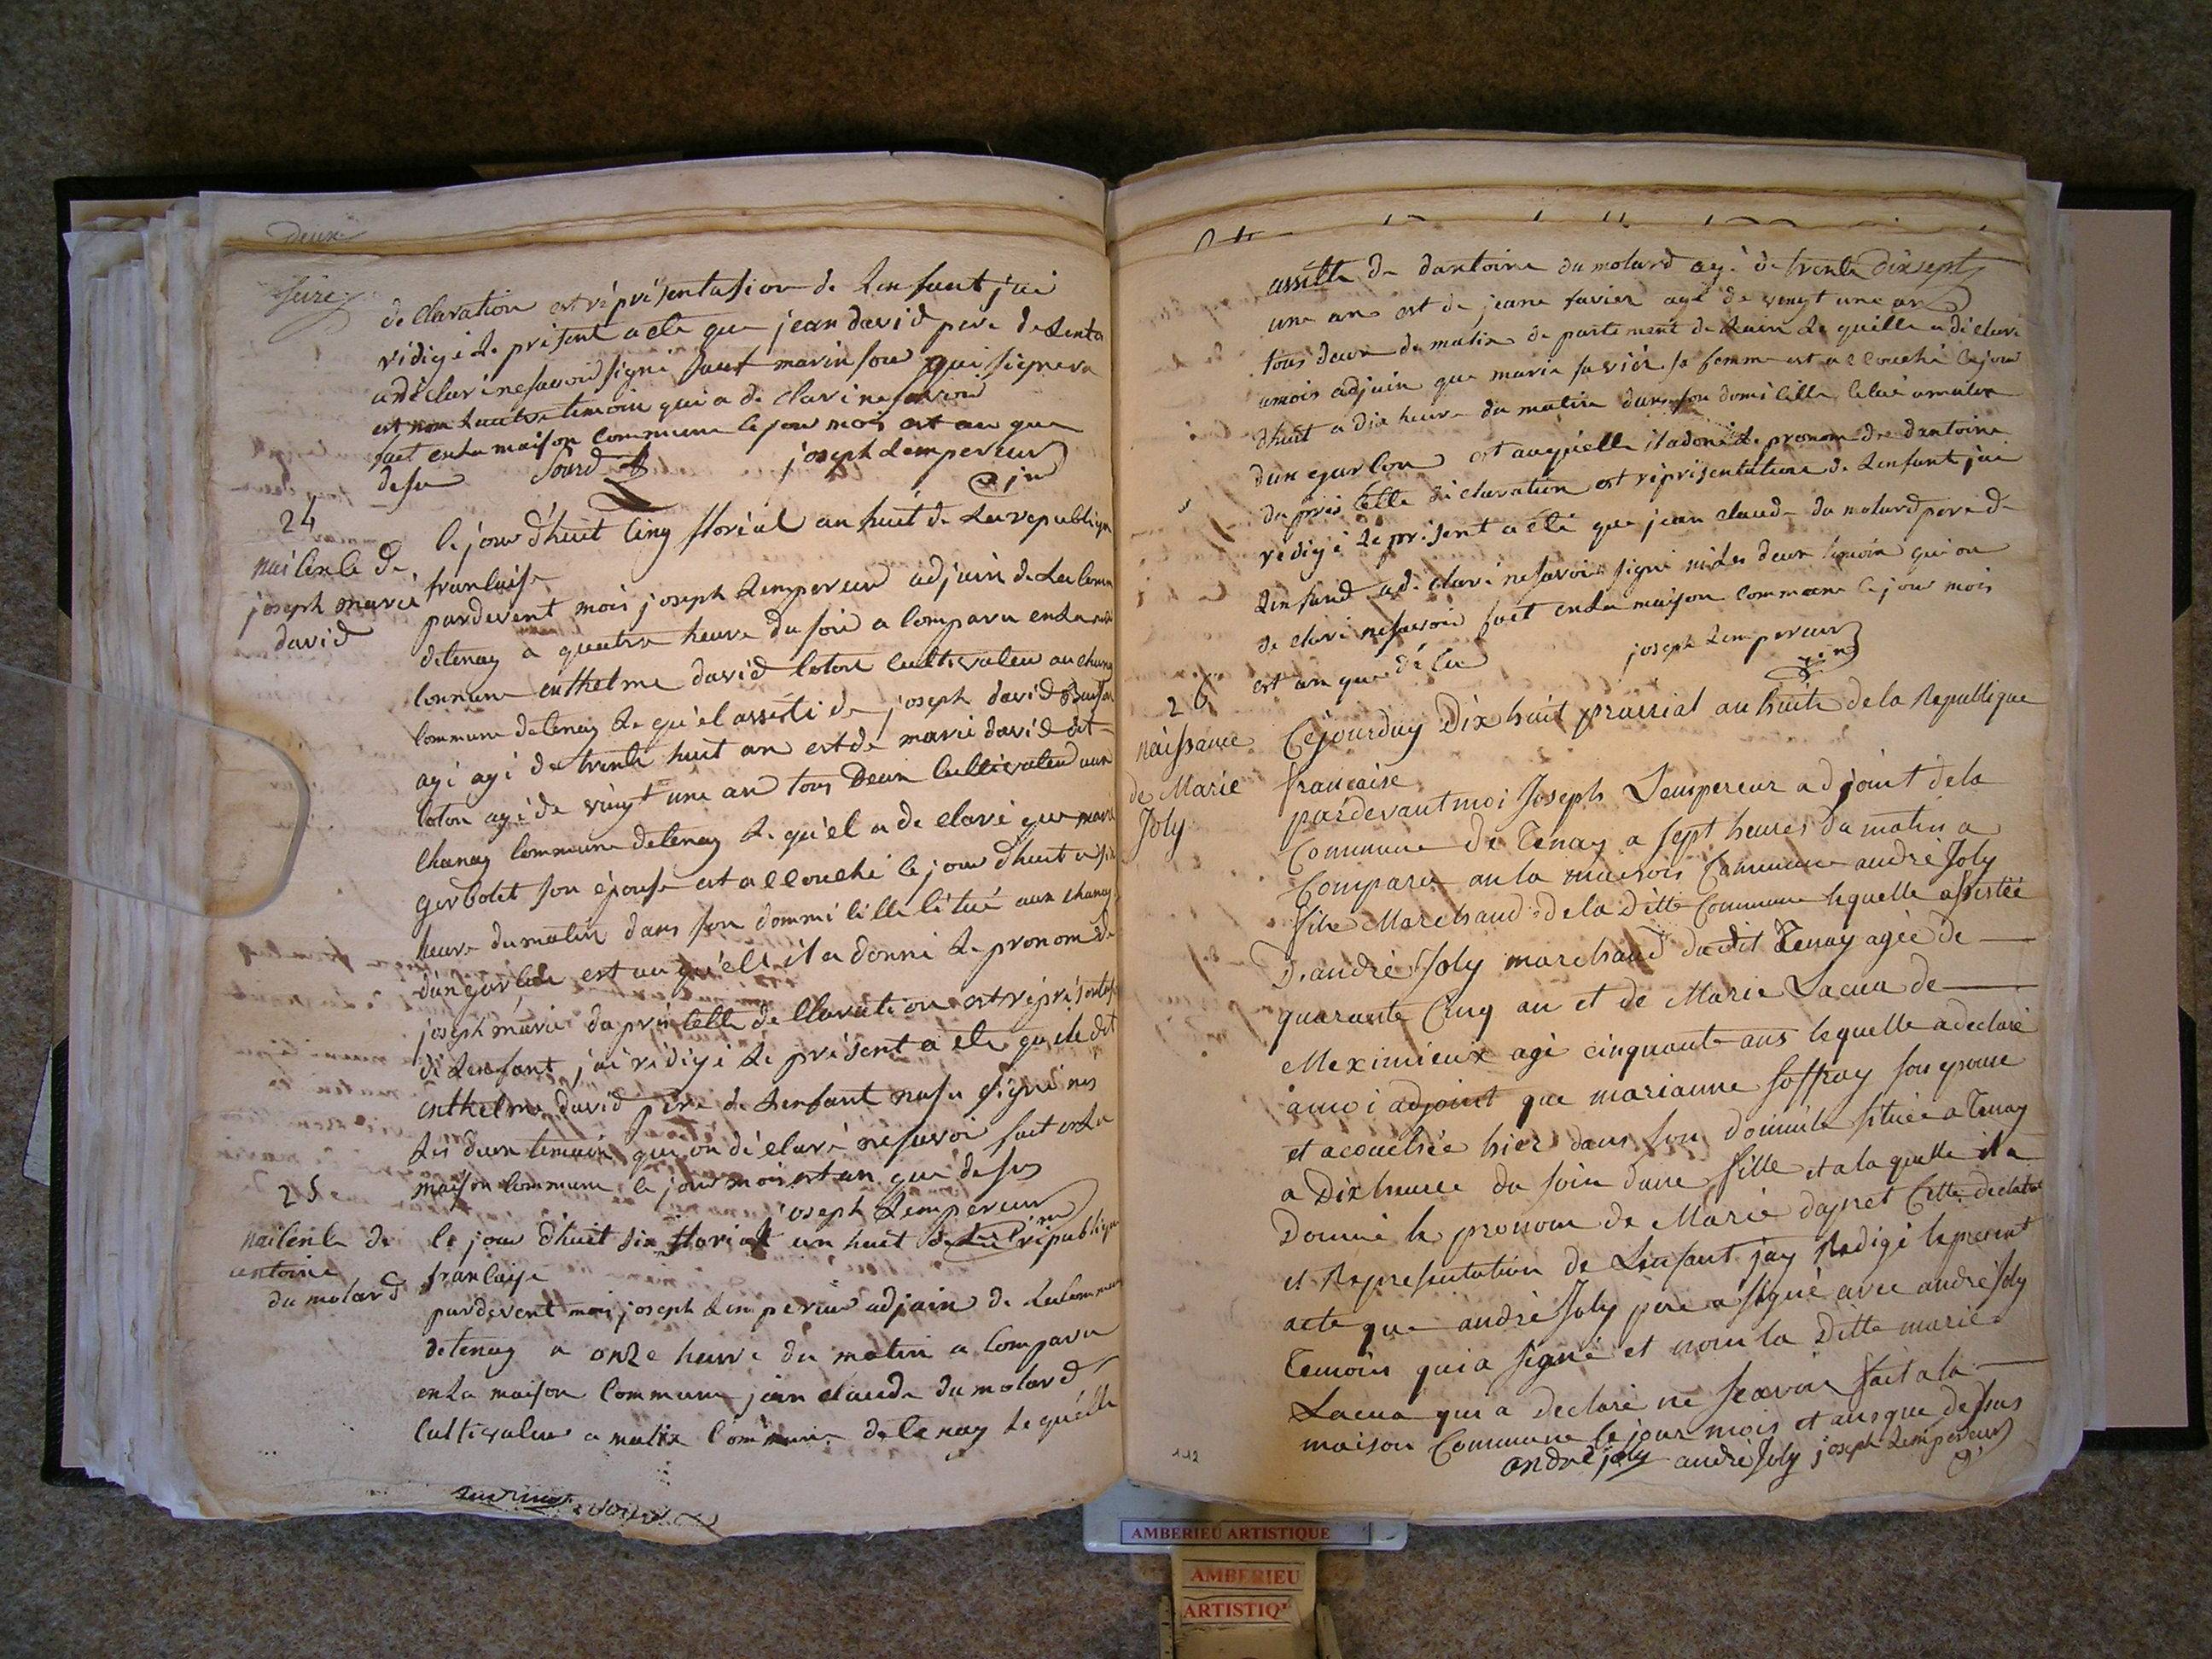 deux
seize
declaration est réprésentasion de Lenfant jai
rédigé Le présent acte que jean david pere de Lenfa
a déclaré ne savoir signé sauf marin sou qui signera
est non Lautre temoin qui a de claré ne savoir
fait en La maison commune le jour mois est an que
desu Sourd joseph Lempereur
ajoin
24
naisence de
joseph marie
david
le jour d'huit cinq floréal an huit de La republique
francaise
pardevent mois joseph Lempereur adjoin de La comm
detenay a quatre heure du soir a comparu en La mai
commune enthelme david coton cultivateur au chanay
commune detenay Le qu'el assisté de joseph david
agé agé de trente huit an est de marie david dit
coton agé de vingt une an tous Deux cultivateur aux
chanay commune detenay Le qu'el a de claré que marie
gerbolet son épouse est accouché le jour dhuit a six
heure du matin dans son dommicille situé aux chanay
d'un garçon est au qu'el il a donné Le pronom de
joseph marie da prés cette de claration est réprésentasi
de Lenfant j'ai rédigé Le présent a cte que le dit
enthelme david pere de Lenfant na su signé nis
Les deux temoin qui on déclaré ne savoir fait en La
maison commune le jour mois est an que desus
joseph Lempereur
25
naisence de
antoine
du molard
le jour d'huit six floriat an huit de La république
francaise
pardevent mois joseph Lempereur adjoin de La commune
detenay a onze heure du matin a comparu
en La maison commune jean claude du molard
cultivateur a malix commune detenay Le quelle
assiste de dantoine du molard agé de trente dixsept
une ans est de jeane favier agé de vingt une an
tous deux de malix de partement de Lain Le quelle a déclaré
amois adjoin que marie favier sa femme est accouché le jour
dhuit a dix heure du matin dans son domicille situé amalix
dun garçon est auquelle il a doné Le pronom de dantoine
da prés cette déclaration est réprésentation de Lenfant jai
redigé Le present acte que jean claude du molard pere de
Lenfand a de claré ne savoir signé ni Les deux temoin qui on
de claré ne savoir fait en La maison commune le jour mois
est an que désu joseph Lempereur
26
naissance
de Marie
Joly
Cejourduy Dix huit prairial an huite de la Republique
francaise
pardevant moi Joseph Lempereur adjoint de la
Commune de Tenay a sept heures du matin a
Comparu au la maison Commune andré Joly
fils Marchand de la Ditte Commune lequelle assistée
D'andré Joly marchand dudit Tenay agée de
quarante Cinq an et de Marie Lacua de
Meximieux agé cinquante ans lequelle a declaré
a moi adjoint que marianne Soffray son epouse
et acouchée hier dans son domicile situé a Tenay
a Dix heure du soir dune fille et a laquelle il a
Donné le pronom de Marie dapret Cette declatat
et Representation de Lenfant jay Redigé le present
acte que andré Joly pere a signé avec andré Joly
Temoins qui a signé et nom la Ditte marie
Lacua qui a Declaré ne scavoir fait a la
maison Commune le jour mois et ans que dessus
andré joly andré Joly joseph Lempereur
112
AMBERIEU ARTISTIQUE
AMBERIEU
ARTISTIQ